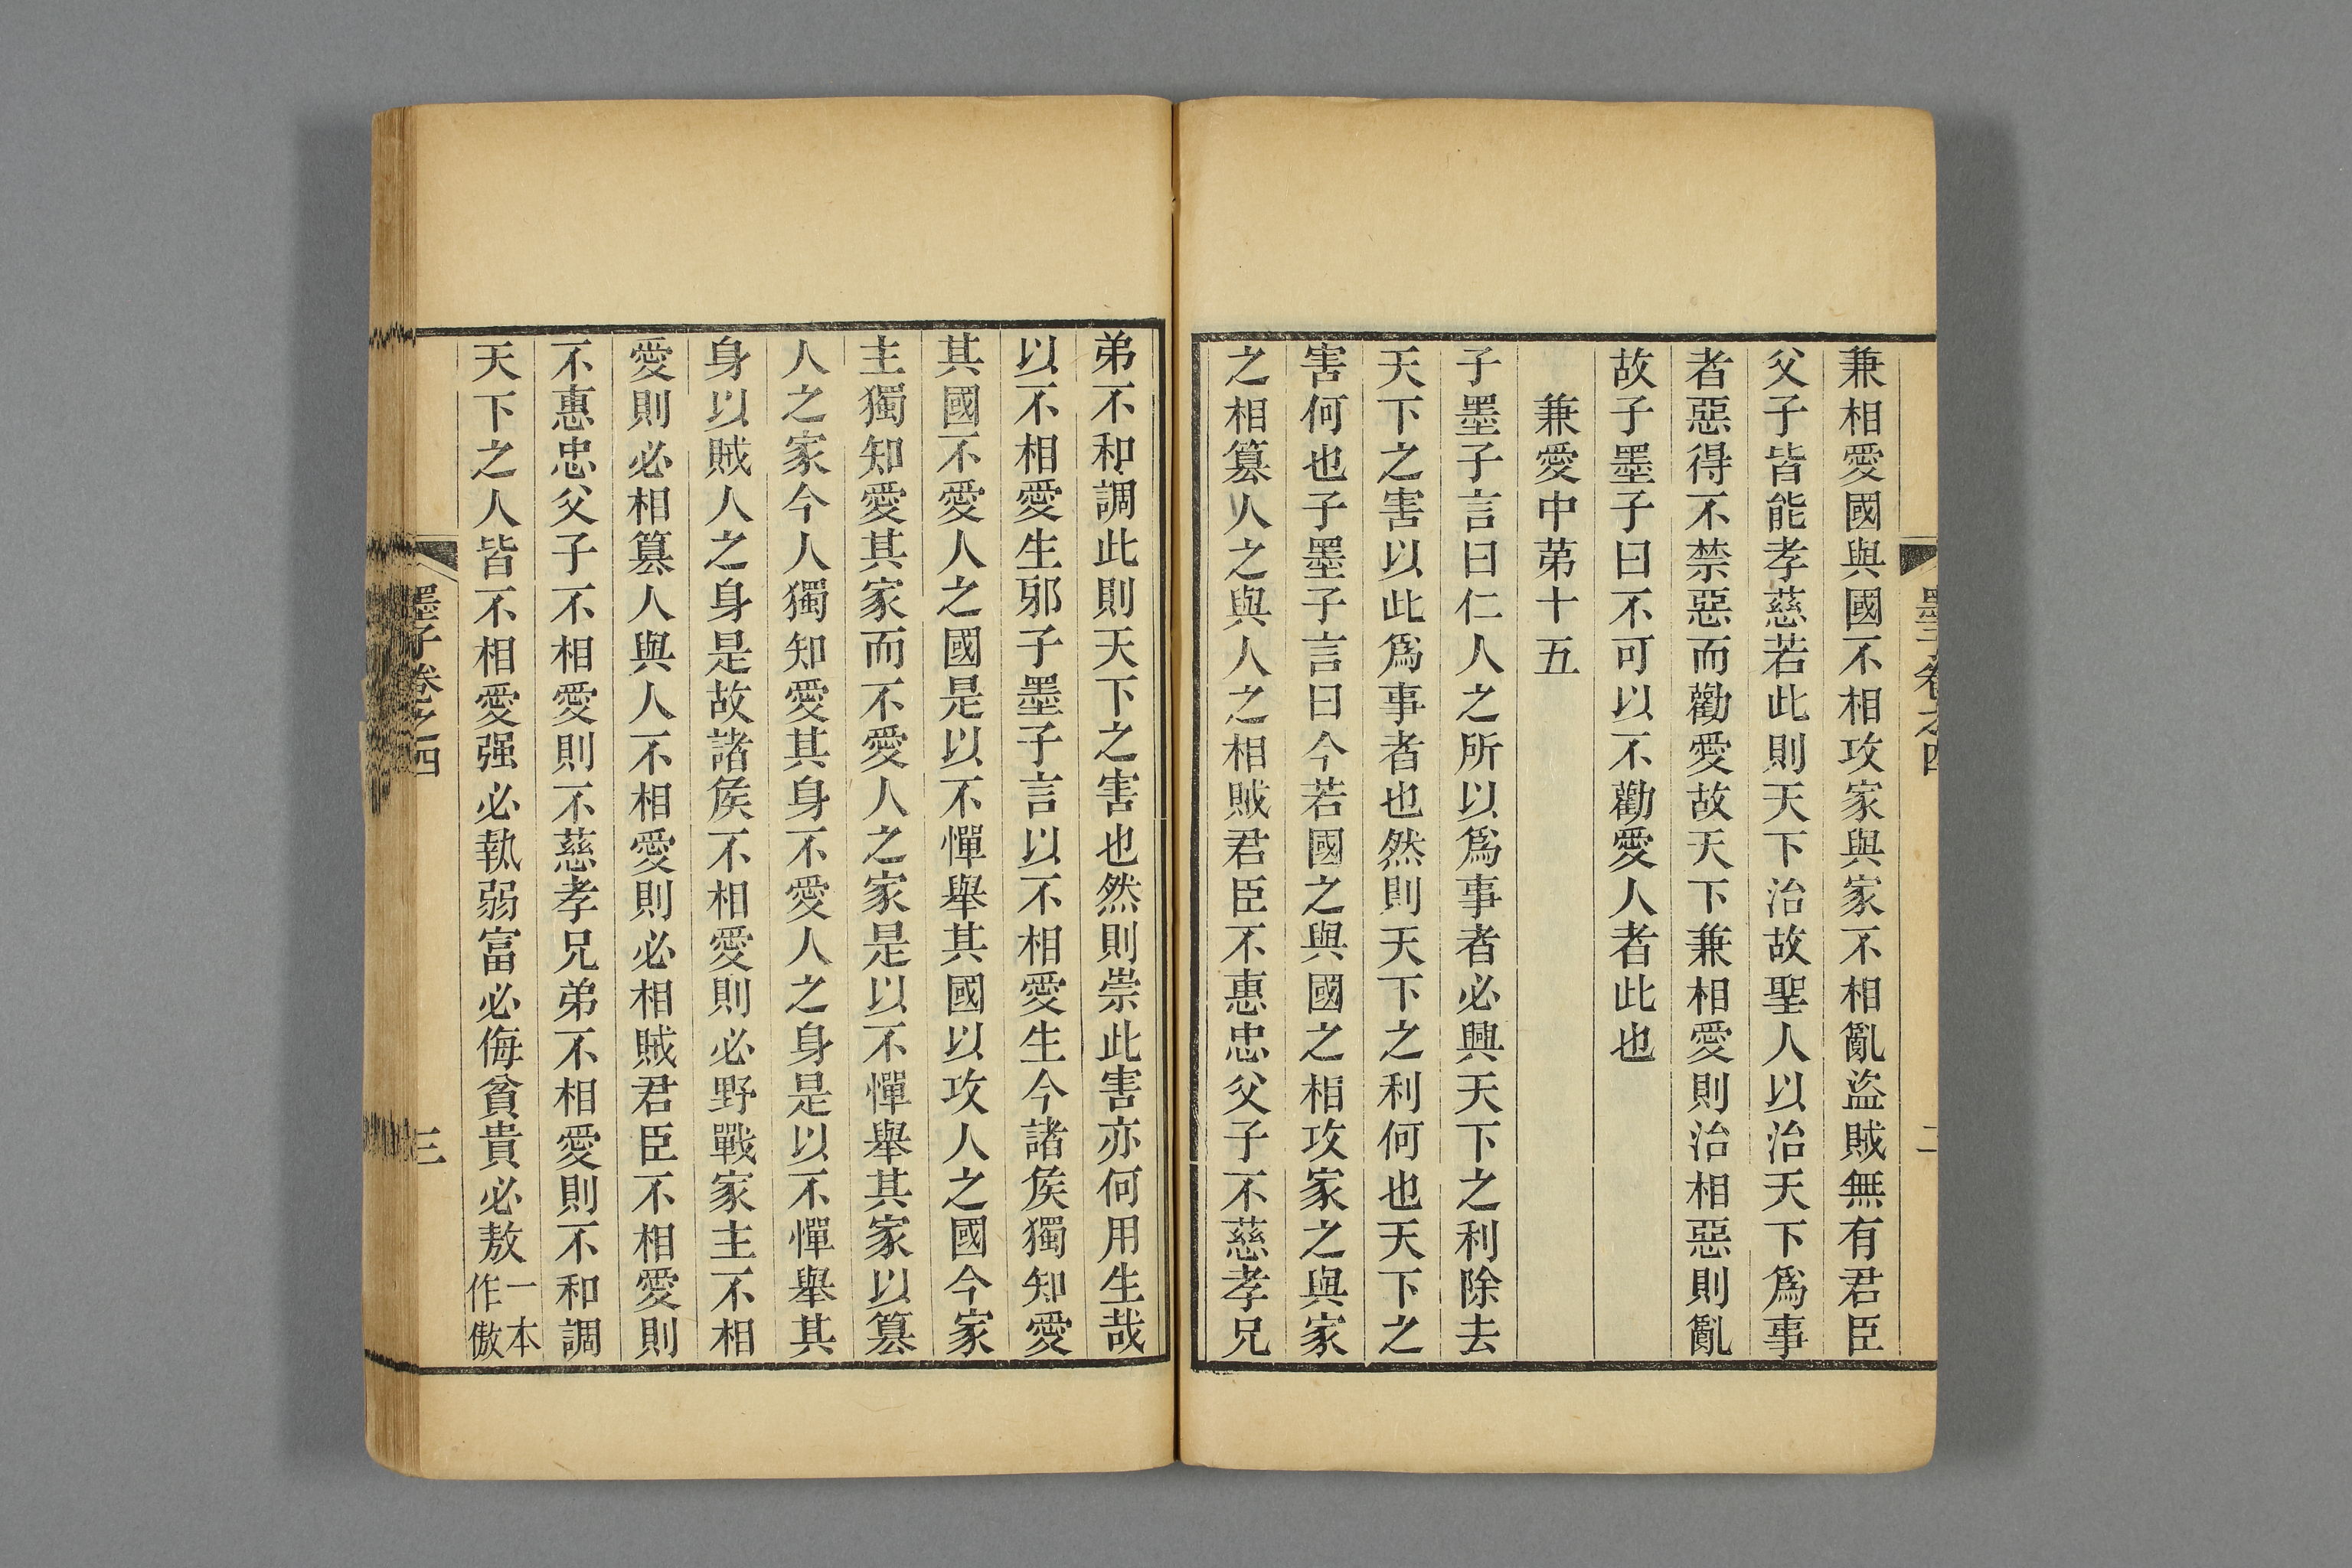 墨子卷之四
二
兼相愛國與國不相攻家與家不相亂盜賊無有君臣
父子皆能孝慈若此則天下治故聖人以治天下爲事
者惡得不禁惡而勸愛故天下兼相愛則治相惡則亂
故子墨子曰不可以不勸愛人者此也
兼愛中苐十五
子墨子言曰仁人之所以爲事者必興天下之利除去
天下之害以此爲事者也然則天下之利何也天下之
害何也子墨子言曰今若國之與國之相攻家之與家
之相篡人之與人之相賊君臣不惠忠父子不慈孝兄
弟不和調此則天下之害也然則崇此害亦何用生哉
以不相愛生邪子墨子言以不相愛生今諸矦獨知愛
其國不愛人之國是以不憚舉其國以攻人之國今家
主獨知愛其家而不愛人之家是以不憚舉其家以篡
人之家今人獨知愛其身不愛人之身是以不憚舉其
身以賊人之身是故諸矦不相愛則必野戰家主不相
愛則必相篡人與人不相愛則必相賊君臣不相愛則
不惠忠父子不相愛則不慈孝兄弟不相愛則不和調
天下之人皆不相愛强必執弱富必侮貧貴必敖一本作傲
墨子卷之四
三